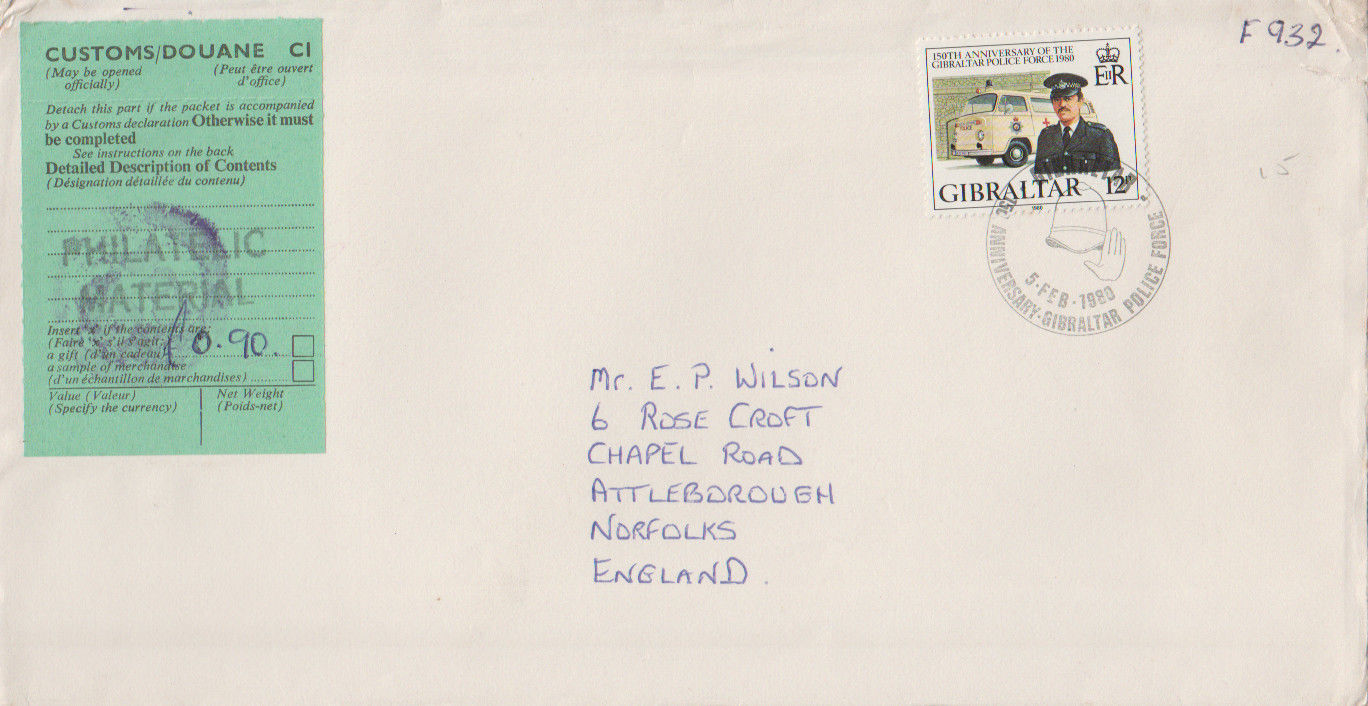 CUSTOMS/DOUANE C1
(May be opened officially) (Peut être ouvert d'office)
Detach this part if the packet is accompanied
by a Customs declaration Otherwise it must
be completed
See instructions on the back
Detailed Description of Contents
(Désignation détaillée du contenu)
PHILATELIC
MATERIAL
Insert 'x' if the contents are:
(Faire 'x' s'il s'agit:
a gift (d'un cadeau)
£0.90.
a sample of merchandise
(d'un échantillon de marchandises)
Value (Valeur) Net Weight
(Specify the currency) (Poids-net)
F932.
150TH ANNIVERSARY OF THE
GIBRALTAR POLICE FORCE 1980
EIIR
POLICE
GIBRALTAR 12p
1980
GIBRALTAR
ANNIVERSARY·GIBRALTAR POLICE FORCE
5·FEB·1980
15
Mr. E. P. WILSON
6 ROSE CROFT
CHAPEL ROAD
ATTLEBOROUGH
NORFOLKS
ENGLAND.